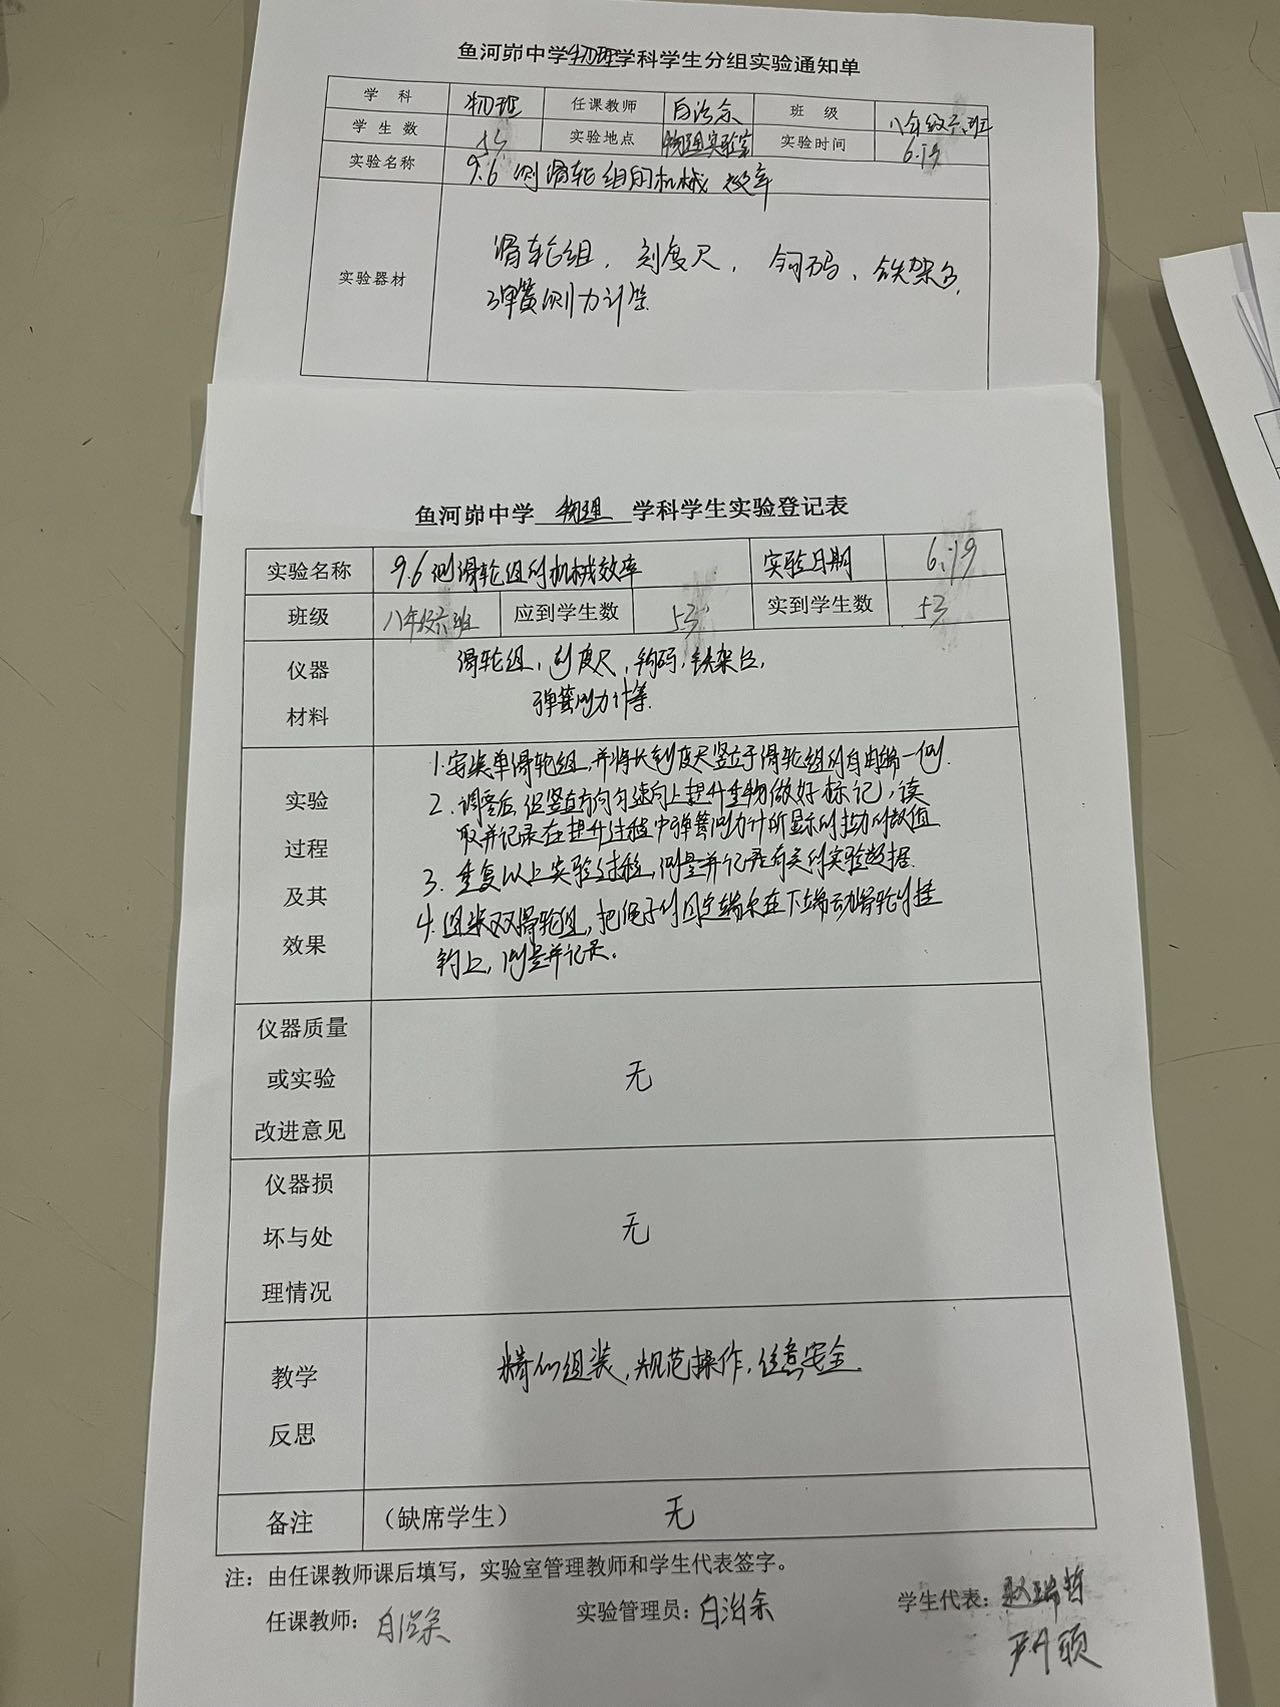 鱼河峁中学物理学科学生分组实验通知单
学 科 物理 任课教师 白治余 班 级 八年级六班
学 生 数 实验地点 物理实验室 实验时间 6.19
实验名称 9.6 测滑轮组的机械效率
实验器材 滑轮组，刻度尺，钩码，铁架台，
弹簧测力计等
鱼河峁中学 物理 学科学生实验登记表
实验名称 9.6 测滑轮组的机械效率 实验日期 6.19
班级 八年级六班 应到学生数 53 实到学生数 53
仪器材料 滑轮组，刻度尺，钩码，铁架台，
弹簧测力计等.
实验过程及其效果
1.安装单滑轮组，并将长刻度尺竖立于滑轮组的自由端一侧.
2.调零后，沿竖直方向匀速向上提升重物做好标记，读
取并记录在提升过程中弹簧测力计所显示的拉力的数值
3.重复以上实验过程，测量并记录有关的实验数据.
4.组装双滑轮组，把绳子的固定端系在下端动滑轮的挂
钩上，测量并记录.
仪器质量或实验改进意见 无
仪器损坏与处理情况 无
教学反思 精心组装，规范操作，注意安全.
备注 （缺席学生） 无
注：由任课教师课后填写，实验室管理教师和学生代表签字。
任课教师：白治余 实验管理员：白治余 学生代表：赵瑞哲